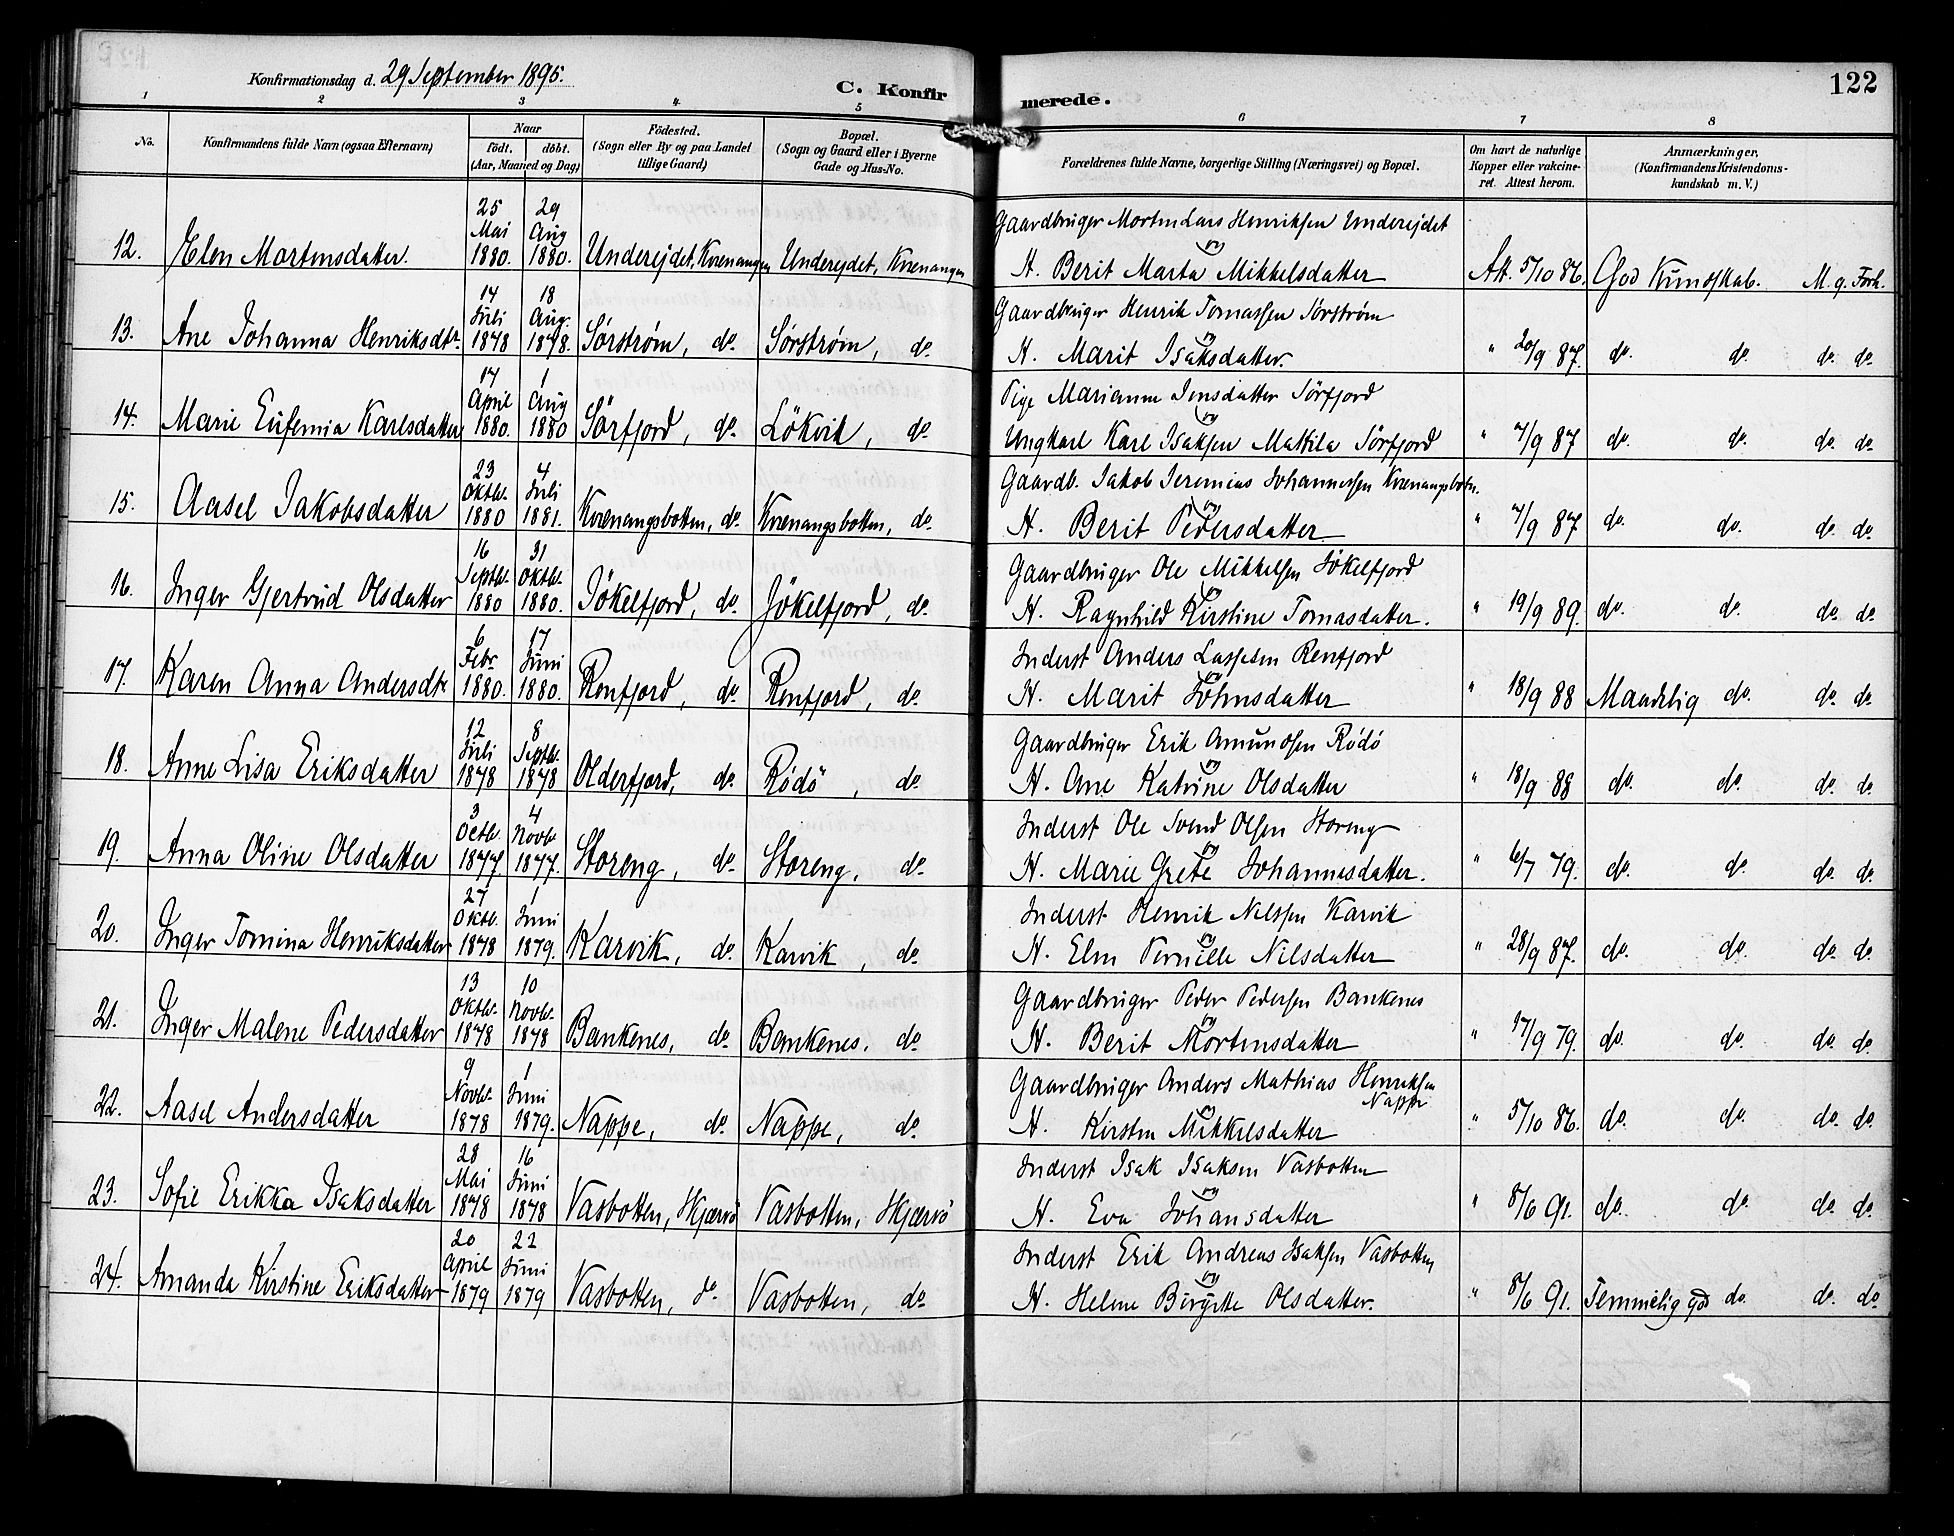 122
Konfirmationsdag d. 29 September 1895.
C. Konfirmerede.
1 2 3 4 5 6 7 8
No. | Konfirmandens fulde Navn (ogsaa Efternavn) | Naar födt. döbt. (Aar, Maaned og Dag) | Födested. (Sogn eller By og paa Landet tillige Gaard) | Bopæl. (Sogn og Gaard eller i Byerne Gade og Hus-No. | Forældrenes fulde Navne, borgerlige Stilling (Næringsvei) og Bopæl. | Om havt de naturlige Kopper eller vakcineret. Attest herom. | Anmærkninger, (Konfirmandens Kristendomskundskab m. V.)
12. Elen Mortensdatter. | 25 Mai 1880. | 29 Aug 1880. | Undereidet, Kvenangen | Undereidet, Kvenangen | Gaardbruger Morten Lars Henriksen Undereidet og H. Berit Marta Mikkelsdatter | Att. 5/10 86. | God Kundskab. M. g. Forh.
13. Ane Johanna Henriksdtr. | 14 Juli 1878 | 18 Aug. 1878. | Sørstrøm, do. | Sørstrøm, do. | Gaardbruger Henrik Tomassen Sørstrøm og H. Marit Isaksdatter. | " 20/9 87. | do. do. do. do.
14. Marie Eufemia Karlsdatter | 17 April 1880. | 1 Aug 1880 | Sørfjord, do. | Lökvik, do. | Pige Marianne Jensdatter Sörfjord og Ungkarl Karl Isaksen Mattila Sörfjord | " 7/9 87 | do. do. do. do.
15. Aasel Jakobsdatter | 23 Oktbr. 1880 | 4 Juli 1881. | Kvenangsbotten, do. | Kvenangsbotten, do. | Gaardb. Jakob Jeremias Johannessen Kvenangsbotn. og H. Berit Pedersdatter | " 7/9 87 | do. do. do. do.
16. Inger Gjertrud Olsdatter | 16 Septbr. 1880 | 31 Oktbr. 1880. | Jökelfjord, do. | Jökelfjord, do. | Gaardbruger Ole Mikkelsen Jökelfjord og H. Ragnhild Kirstine Tomasdatter. | " 19/9 89. | do. do. do. do.
17. Karen Anna Andersdtr | 6 Febr. 1880. | 17 Juni 1880. | Renfjord, do. | Renfjord, do. | Inderst Anders Lassesen Renfjord og H. Marit Johnsdatter | " 18/9 88 | Maadelig do. do. do.
18. Anne Lisa Eriksdatter | 12 Juli 1878 | 8 Septbr. 1878 | Olderfjord, do. | Rödö, do. | Gaardbruger Erik Amundsen Rödö og H. Ane Katrine Olsdatter | " 18/9 88 | do. do. do. do.
19. Anna Oline Olsdatter | 3 Octbr. 1877 | 4 Novbr 1877. | Storeng, do. | Storeng, do. | Inderst Ole Svend Olsen Storeng og H. Marie Grete Johannesdatter. | " 6/7 79. | do. do. do. do.
20. Inger Tomina Henriksdatter | 27 Oktbr. 1878 | 1 Juni 1879. | Karvik, do. | Karvik, do. | Inderst Henrik Nilssen Karvik og H. Elen Pernille Nilsdatter | " 28/9 87. | do. do. do. do.
21. Inger Malene Pedersdatter | 13 Oktbr. 1878 | 10 Novbr. 1878 | Bankenes, do. | Bankenes. do. | Gaardbruger Peder Pedersen Bankenes og H. Berit Mortensdatter | " 17/9 79. | do. do. do. do.
22. Aasel Andersdatter | 9 Novbr. 1878 | 1 Juni 1879. | Nappe, do. | Nappe, do. | Gaardbruger Anders Mathias Henriksen Nappe og H. Kirsten Mikkelsdatter | " 5/10 86. | do. do. do. do.
23. Sofie Erikka Isaksdatter | 28 Mai 1878 | 16 Juni 1878 | Vasbotten, Skjærvö | Vasbotten, Skjærvö | Inderst Isak Isaksen Vasbotten og H. Eva Johansdatter | " 8/6 91. | do. do. do. do.
24. Amanda Kirstine Eriksdatter | 20 April 1879 | 22 Juni 1879 | Vasbotten, do. | Vasbotten, do. | Inderst Erik Andreas Isaksen Vasbotten og H. Helene Birgitte Olsdatter. | " 8/6 91. | Temmelig god do. do. do.